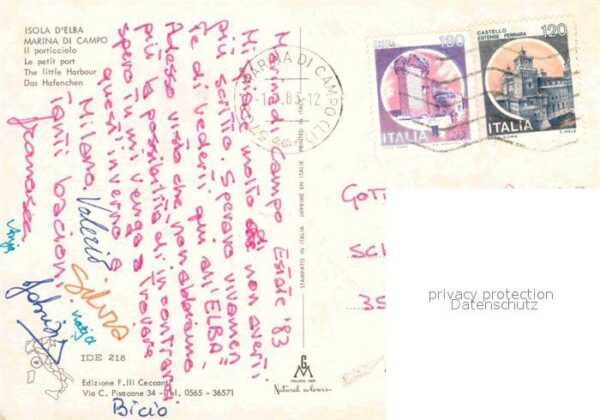 ISOLA D'ELBA
MARINA DI CAMPO
Il porticciolo
Le petit port
The little Harbour
Das Hafenchen
Marina di Campo Estate '83
Mi spiace molto di non averti
più scritto. Speravo vivamen
te di vederti qui all'"ELBA"
Adesso visto che non abbiamo
più la possibilità di incontrarci
spero tu mi venga a trovare
quest'inverno a
Milano.
Tanti bacioni
Francesca
Valerio
Silvia
Katja
Bicio
MARINA DI CAMPO (LI)
83-12
190
ITALIA
CASTELLO
ESTENSE - FERRARA
120
ITALIA
STAMPATO IN ITALIA
IMPRIMÉ EN ITALIE
PRINTED IN ITALY
IDE 218
Edizione F.lli Ceccanti
Via C. Pisacane 34 - Tel. 0565 - 36571
Natural colours
privacy protection
Datenschutz
GOT
SC
35